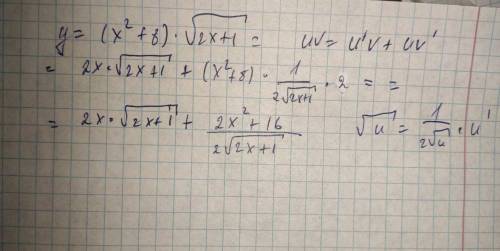 y = (x² + 8) · √(2x+1) = uv = u'v + uv'
= 2x · √(2x+1) + (x² + 8) · 1/(2√(2x+1)) · 2 = =
= 2x · √(2x+1) + (2x² + 16)/(2√(2x+1)) √u' = 1/(2√u) · u'